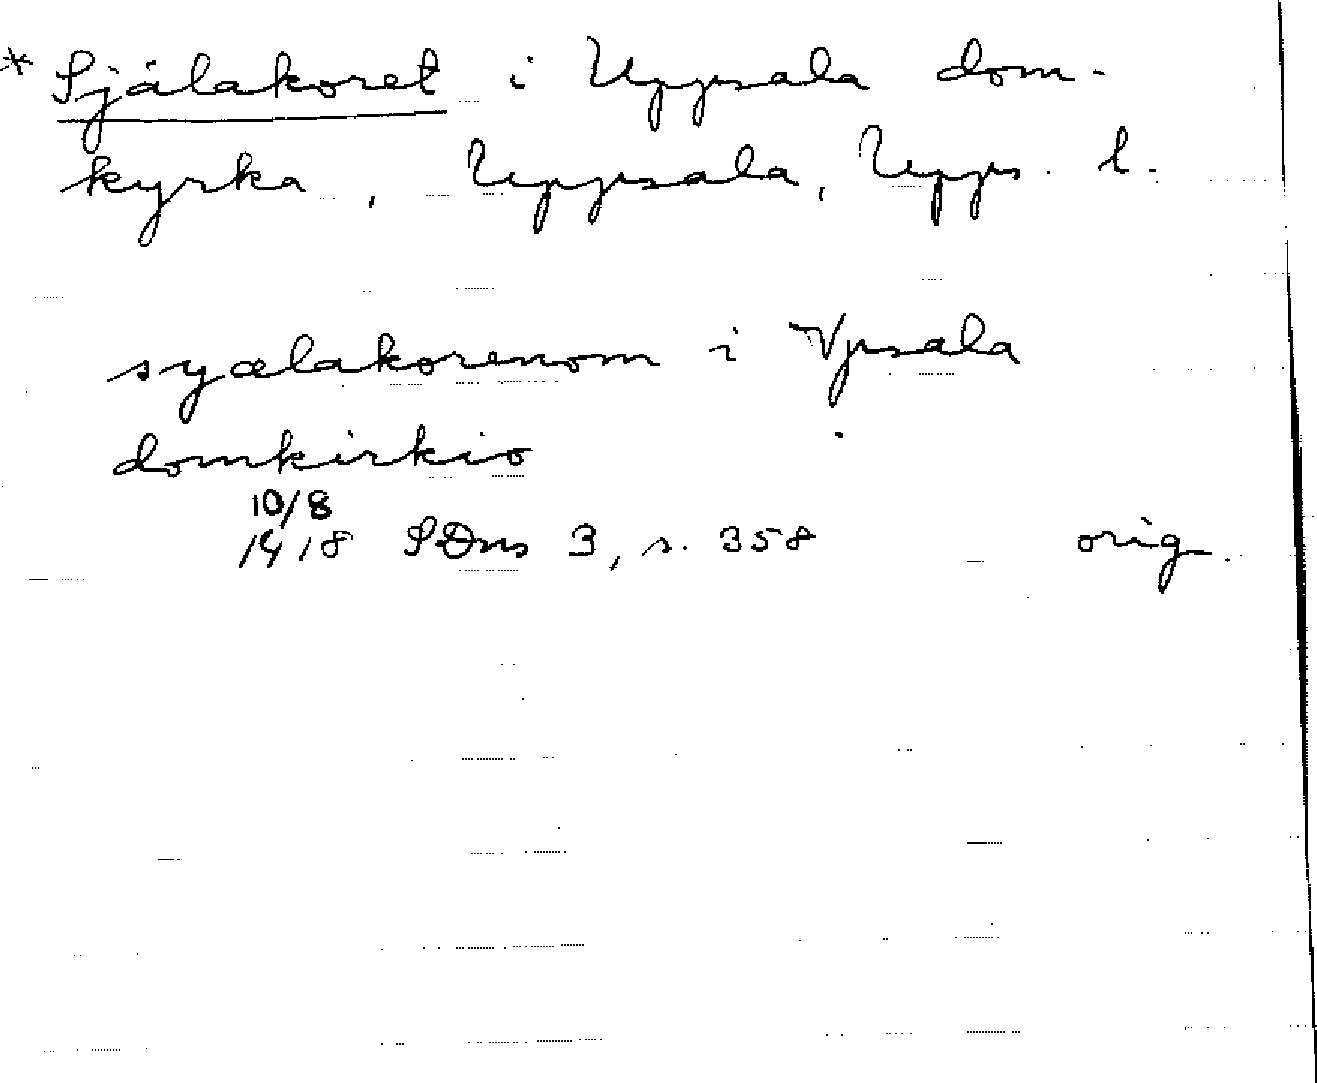 * Själakoret i Uppsala dom-
kyrka, Uppsala, Upps. l.
syælakorenom i Vpsala
domkirkio
10/8
1418 SDns 3, s. 358 orig.